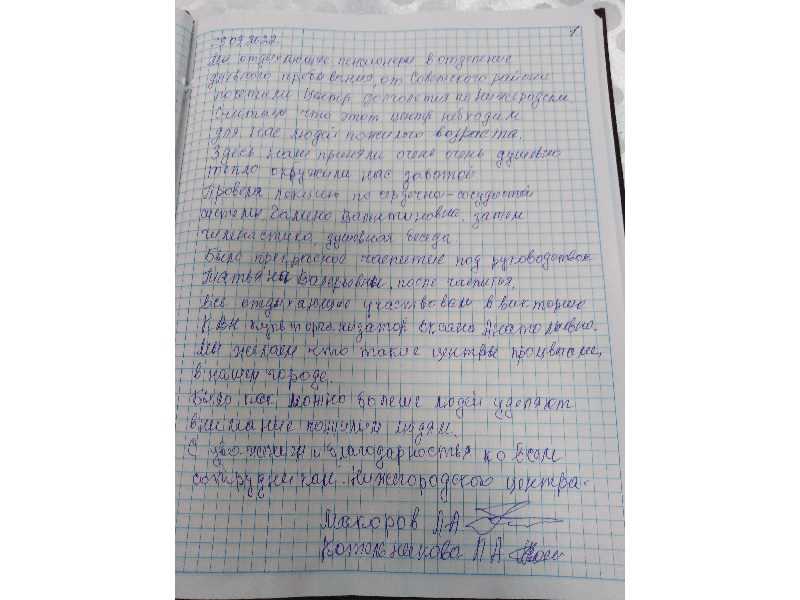 1
09 2022.
Мы отдыхающие пенсионеры в отделение
дневного пребывания, от Советского района
посетили Центр долголетия по Нижегородском
Считаю что этот центр
для нас людей пожилого возраста.
Здесь нами приняли очень очень душевно
тепло окружили нас заботой
Провела лекцию по сердечно-сосудистой
системы, Галина Валентиновна, затем
гимнастика, душевная беседа
Было прекрасное чаепитие под руководством
Татьяны Валерьевны, после чаепития,
все отдыхающие участвовали в викторине
КВН культорганизатор Оксана Анатольевна.
Мы желаем что такие центры процветали,
в нашем городе.
Было как можно больше людей уделяют
внимание пожилым людям.
С уважением и благодарностью ко всем
сотрудникам Нижегородского центра.
Макаров ЛА
Котельникова ЛА